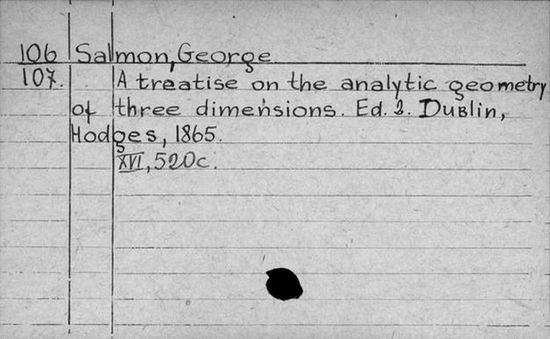 106 Salmon, George
107. A treatise on the analytic geometry
of three dimensions. Ed. 2. Dublin,
Hodges, 1865.
XVI, 520c.